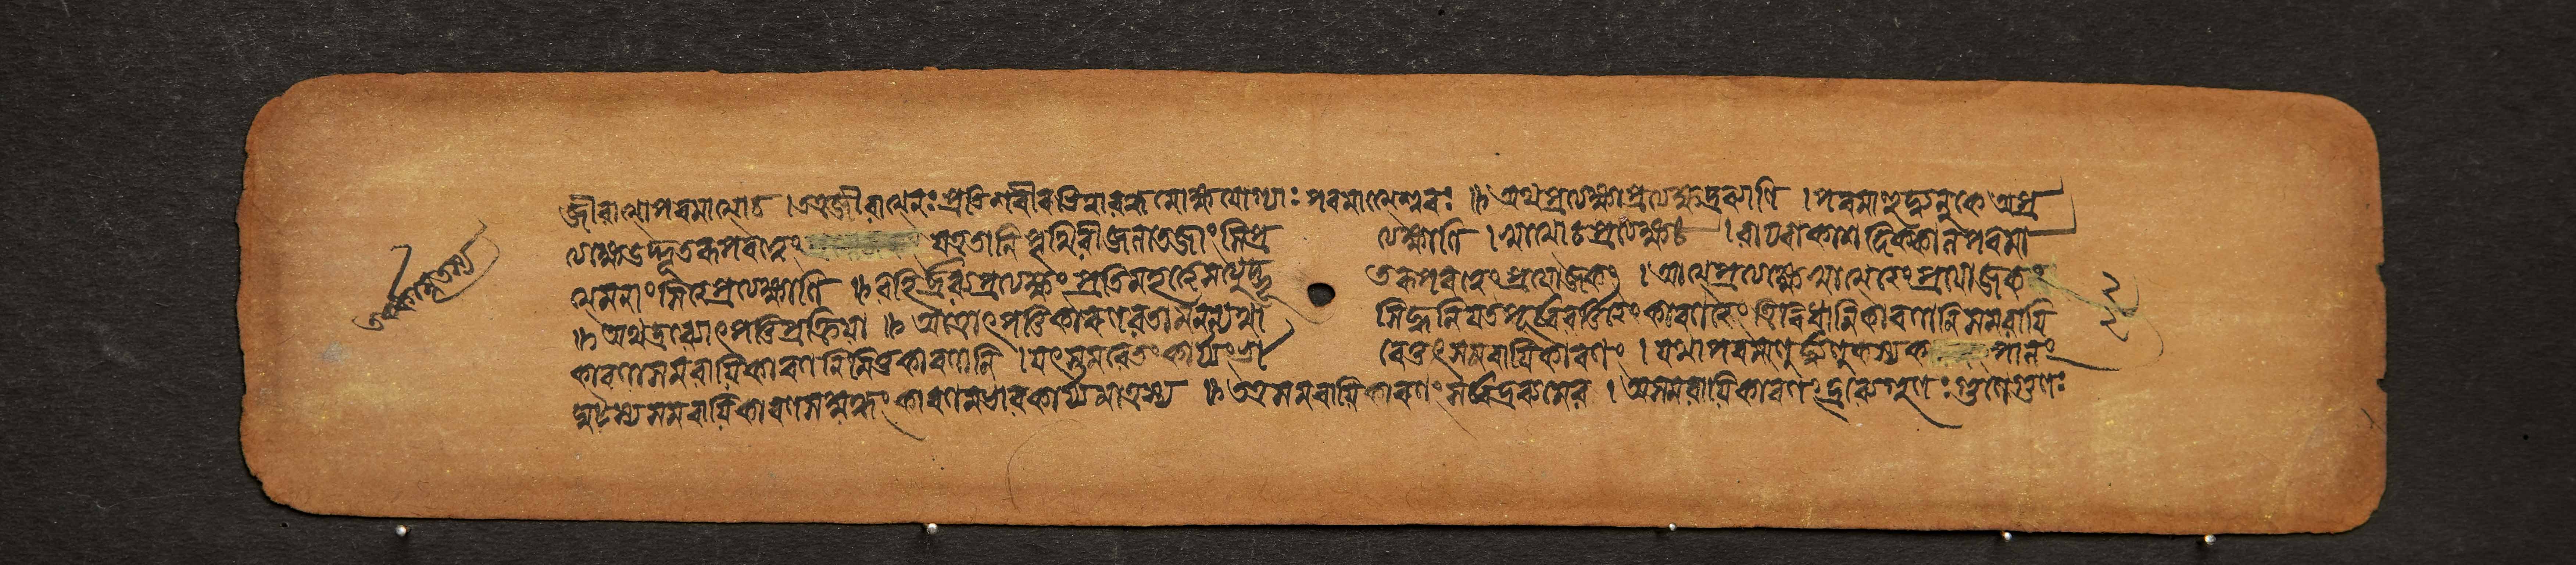 জীবাত্মাপরমাত্মাচ । তত্রজীবাত্মনঃ প্রতিশরীরভিন্নাবন্ধমোক্ষযোগ্যাঃ পরমাত্মেশ্বরঃ ॥ অথপ্রত্যক্ষাপ্রত্যক্ষদ্রব্যাণি । পরমাণুদ্ব্যণুকে অপ্র
ত্যক্ষে উদ্ভূতরূপবত্ত্বং যত্রতানি পৃথিবীজলতেজাংসিপ্র ত্যক্ষাণি । আত্মাচপ্রত্যক্ষঃ । বায্বাকাশদিক্কালপরমা
ণুমনাংসিঅপ্রত্যক্ষাণি ॥ বহির্দ্রব্যপ্রত্যক্ষং প্রতিমহত্ত্বেসত্যুদ্ভূ তরূপবত্ত্বংপ্রযোজকং । আত্মপ্রত্যক্ষেআত্মত্বংপ্রযোজকং ২
॥ অথদ্রব্যোৎপত্তিপ্রক্রিয়া ॥ অনন্যথা সিদ্ধনিয়তপূর্ব্ববর্ত্তিত্বংকারণত্বং ত্রিবিধানিকারণানিসমবায়ি ২
কারণাসমবায়িকারণনিমিত্তকারণানি । যৎসমবেতংকার্য্যংভ বেত্তৎসমবায়িকারণং । যথাপরমাণুর্দ্ব্যণুকস্যক পালং
ঘটস্যসমবায়িকারণ কার্য্যমাত্রস্য ॥ তত্রসমবায়িকারণংসর্ব্বদ্রব্যমেব । অসমবায়িকারণংদ্রব্যেগুণঃ গুণেগুণঃ